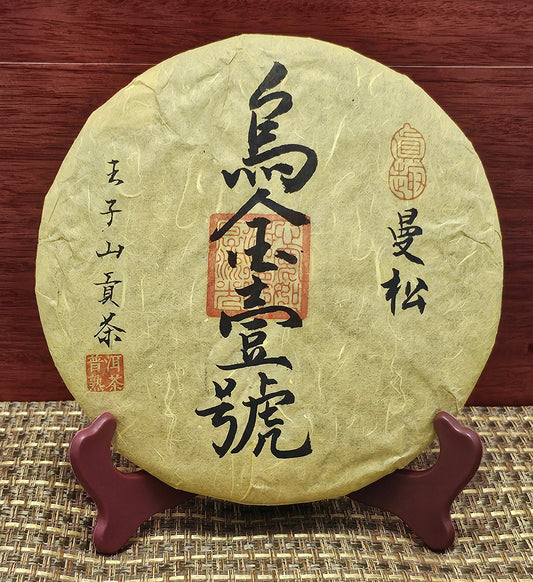 曼松
烏金壹號
王子山貢茶
普洱
熟茶